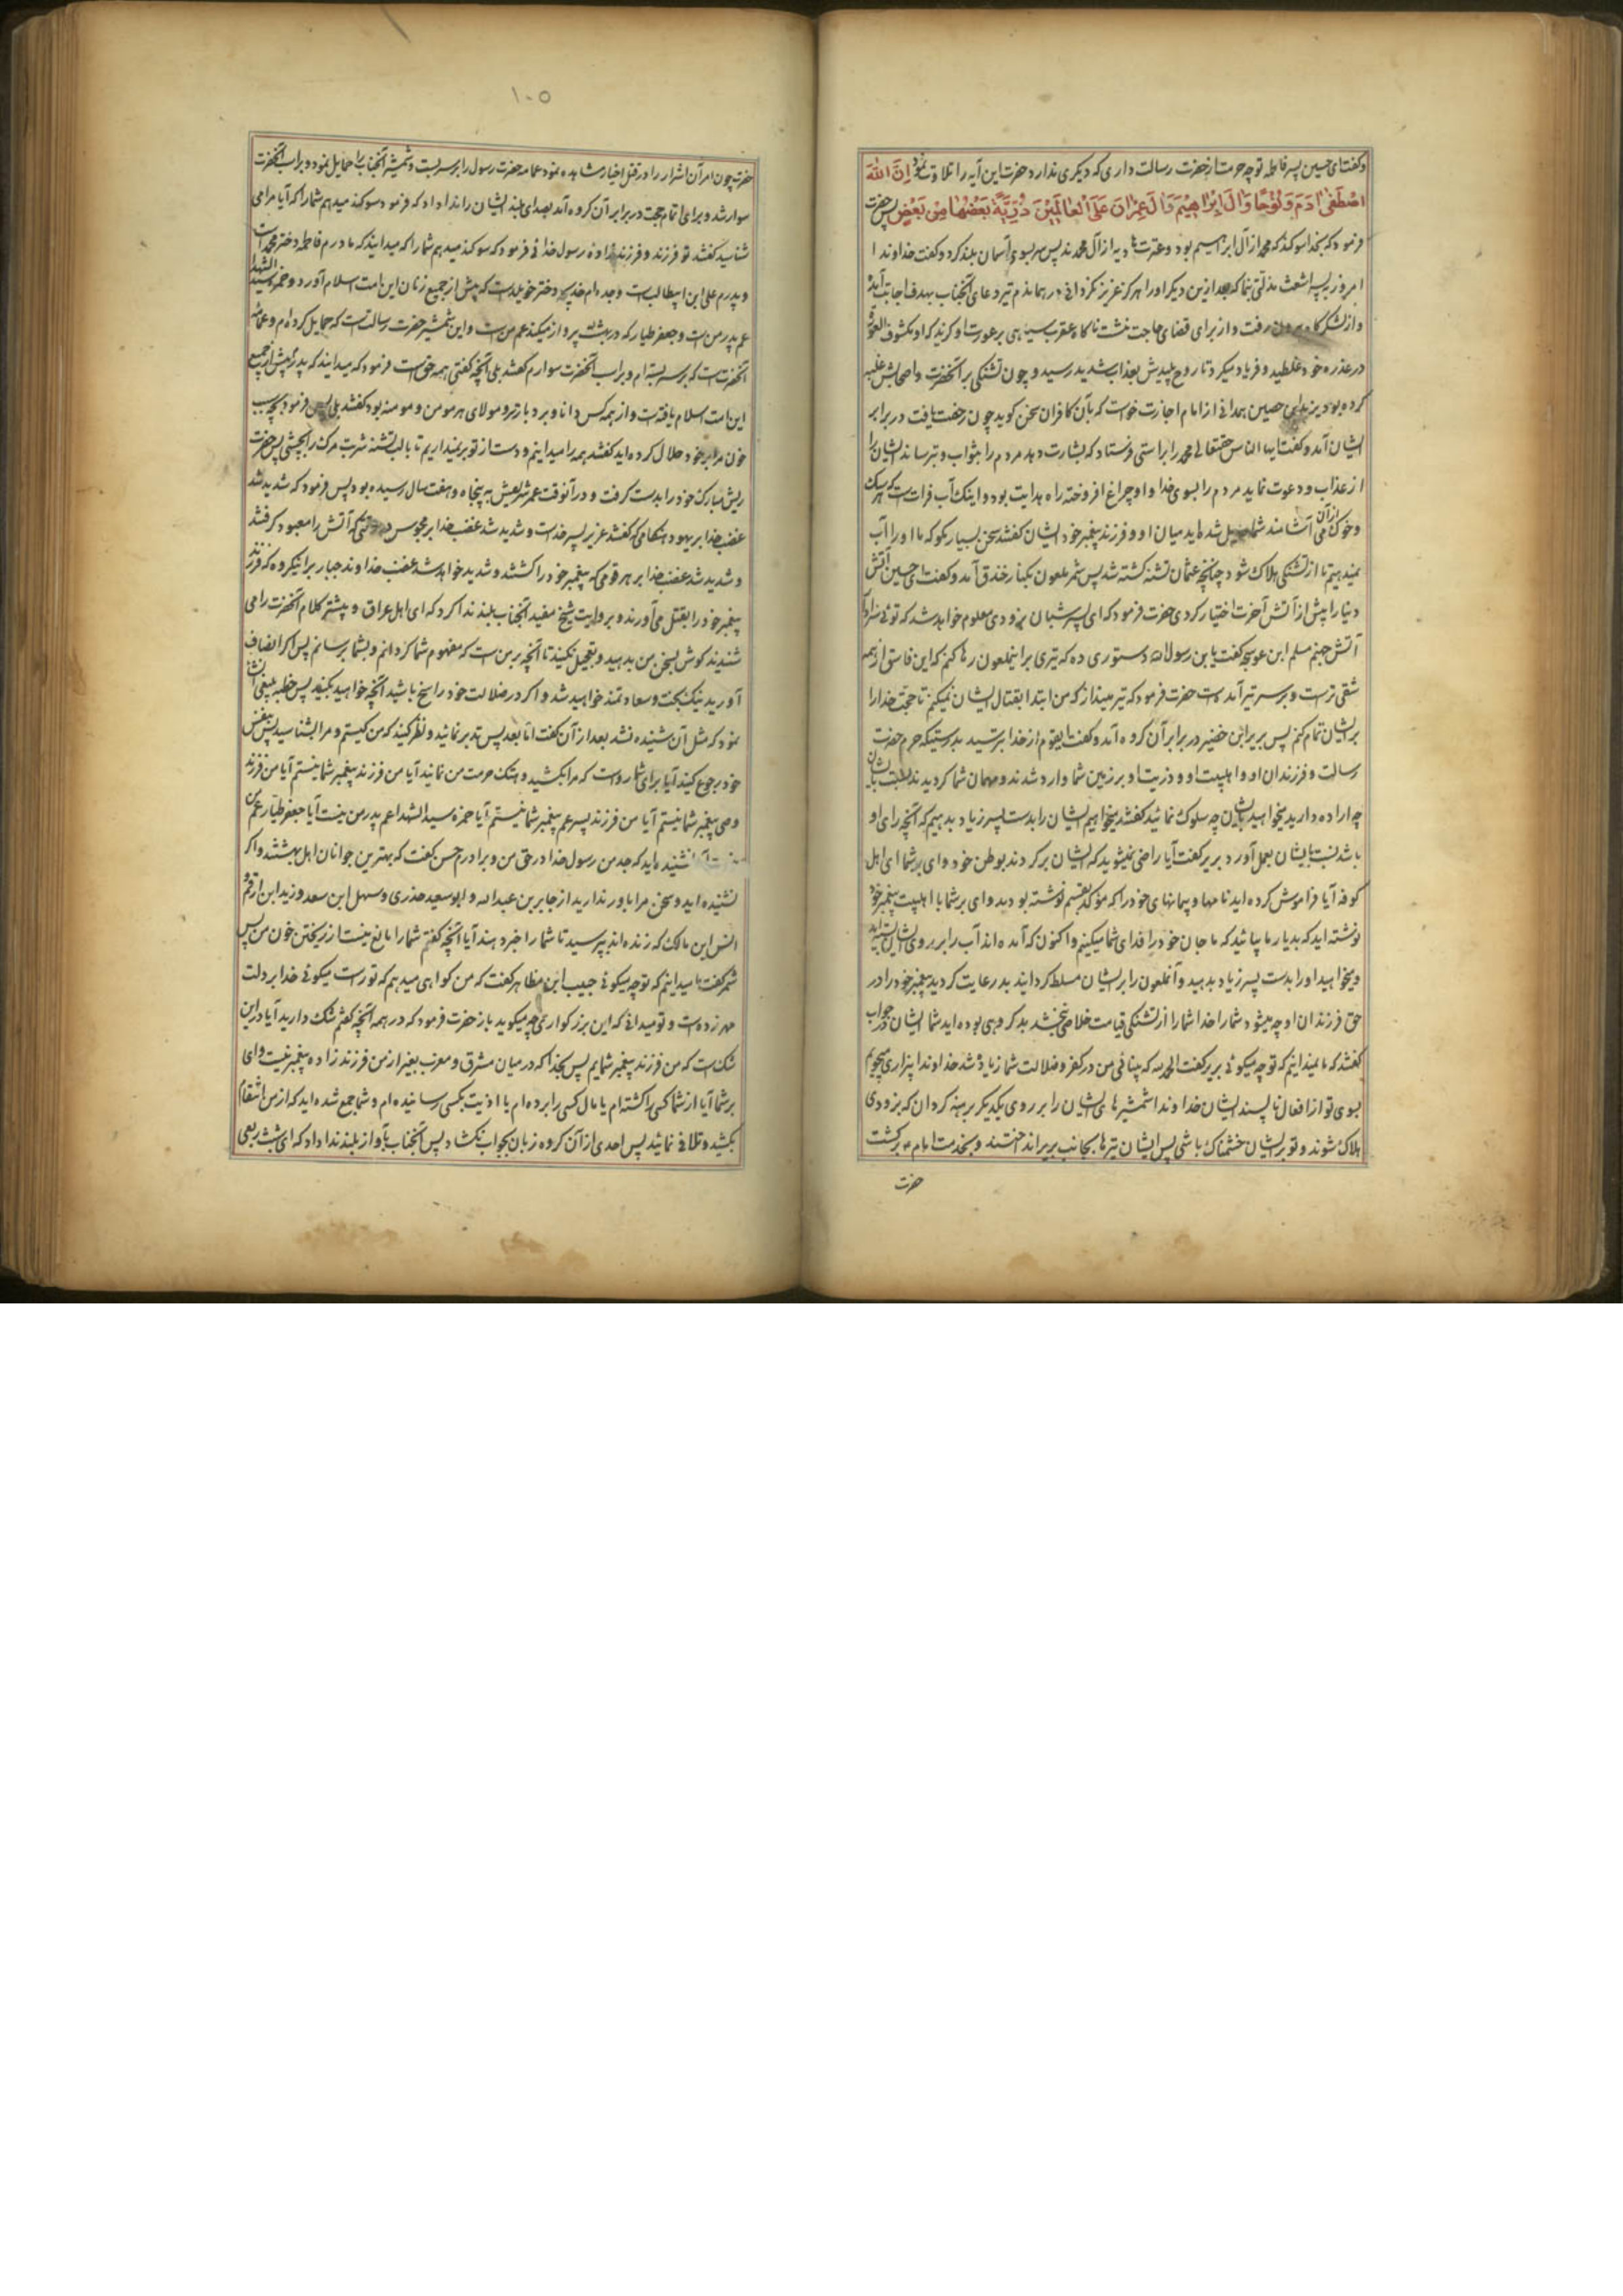 وکفت ای حسین پسر فاطمه تو چه حرمت از حضرت رسالت داری که دیکری ندارد حضرت این آیه را تلاوت نمود اِنَّ اللهَ
اصْطَفٰی اٰدَمَ وَنُوْحًا وَاٰلَ اِبْرٰاهِیْمَ وَاٰلَ عِمْرٰانَ عَلَی الْعٰالَمِیْنَ ذُرِّیَّةً بَعْضُهٰا مِنْ بَعْضٍ پس حضرت
فرمود که بخدا سوکند که محمد از آل ابراهیم بود وعترت هادیه از آل محمدند پس سر بسوی آسمان بلند کرد وکفت خداوندا
امروز بپسر اشعث مذلتی بنما که بعد ازین دیکر اورا هرکز عزیز نکردانی در همان دم تیر دعای آنجناب بهدف اجابت آمد
واز لشکرکاه بیرون رفت واز برای قضای حاجت نشست ناکاه عقرب سیاهی بر عورت او کزید که او مکشوف العوره
در عذره خود غلطید وفریاد میکرد تا روح پلیدش بعذاب شدید رسید وچون تشنکی بر آنحضرت واصحابش غلبه
کرده بود یزید ابن حصین همدانی از امام اجازت خواست که بآن کافران سخن کوید چون رخصت یافت در برابر
ایشان آمد وکفت ایها الناس حقتعالی محمد را براستی فرستاد که بشارت دهد مردم را بثواب وبترساند ایشان را
از عذاب ودعوت نماید مردم را بسوی خدا واو چراغ افروخته راه هدایت بود واینک آب فرات است که سک
وخوک از آن می آشامند شما حایل شده اید میان او وفرزند پیغمبر خود ایشان کفتند سخن بسیار مکو که ما اورا آب
نمیدهیم تا از تشنکی هلاک شود چنانچه عثمان تشنه کشته شد پس شمر ملعون بکنار خندق آمد وکفت ای حسین آتش
دنیا را پیش از آتش آخرت اختیار کردی حضرت فرمود که ای پسر شبان بزودی معلوم خواهد شد که توئی سزاوار
آتش جهنم مسلم ابن عوسجه کفت یابن رسول الله دستوری ده که تیری بر اینملعون رها کنم که این فاسق از همه
شقی تر است وبر سر تیر آمده است حضرت فرمود که تیر مینداز که من ابتدا بقتال ایشان نمیکنم تا حجت خدا را
بر ایشان تمام کنم پس بریر ابن خضیر در برابر آن کروه آمد وکفت ایقوم از خدا بترسید بدرستیکه حرم حضرت
رسالت وفرزندان او واهلبیت او وذریت او بر زمین شما وارد شدند ومهمان شما کردیدند نسبت بایشان
چه اراده دارید میخواهید بایشان چه سلوک نمائید کفتند میخواهیم ایشان را بدست پسر زیاد بدهیم که آنچه رای او
باشد نسبت بایشان بعمل آورد بریر کفت آیا راضی نمیشوید که ایشان برکردند بوطن خود وای بر شما ای اهل
کوفه آیا فراموش کرده اید نامها وپیمانهای خود را که مؤکد بقسم نوشته بودید وای بر شما با اهلبیت پیغمبر خود
نوشته اید که بدیار ما بیائید که ما جان خود را فدای شما میکنیم واکنون که آمده اند آب را بر روی ایشان بسته اید
ومیخواهید اورا بدست پسر زیاد بدهید وآنملعون را بر ایشان مسلط کردانید بد رعایت کردید پیغمبر خود را در
حق فرزندان او چه میشود شما را خدا شما را از تشنکی قیامت خلاصی نبخشد بد کروهی بوده اید شما ایشان در جواب
کفتند که ما نمیدانیم که تو چه میکوئی بریر کفت الحمد لله که بینائی من در کفر وضلالت شما زیاده شد خداوندا بیزاری میجویم
بسوی تو از افعال ناپسند ایشان خداوندا شمشیرهای ایشان را بر روی یکدیکر برهنه کردان که بزودی
هلاک شوند وتو بر ایشان خشمناک باشی پس ایشان تیرها بجانب بریر انداختند وبخدمت امام ع برکشت
حضرت
١٠٥
حضرت چون امر آن اشرار را در قتل اخیار مشاهده نمود عمامه حضرت رسول را بر سر بست وشمشیر آنجناب را حمایل نمود وبر اسب آنحضرت
سوار شد وبرای اتمام حجت در برابر آن کروه آمد بصدای بلند ایشان را ندا داد که فرمود سوکند میدهم شما را که آیا مرا می
شناسید کفتند تو فرزند وفرزندزاده رسول خدائی فرمود که سوکند میدهم شما را که میدانید که مادرم فاطمه دختر محمد است
وپدرم علی ابن ابیطالب است وجده ام خدیجه دختر خویلد است که پیش از جمیع زنان این امت اسلام آورد وحمزه سید الشهدا
عم پدر من است وجعفر طیار که در بهشت پرواز میکند عم من است واین شمشیر حضرت رسالت است که حمایل کرده ام وعمامه
آنحضرت است که بر سر بسته ام وبر اسب آنحضرت سوارم کفتند بلی آنچه کفتی همه حق است فرمود که میدانید که پدرم پیش از جمیع
این امت اسلام یافته است واز همه کس دانا وبردبارتر ومولای هر مومن ومومنه بود کفتند بلی پس فرمود بچه سبب
خون مرا بر خود حلال کرده اید کفتند همه را میدانیم ودست از تو برنمیداریم تا با لب تشنه شربت مرک را بچشی پس حضرت
ریش مبارک خود را بدست کرفت ودر آنوقت عمر شریفش به پنجاه وهفت سال رسیده بود پس فرمود که شدید شد
غضب خدا بر یهود هنکامی که کفتند عزیر پسر خداست وشدید شد غضب خدا بر مجوس در وقتی که آتش را معبود کرفتند
وشدید شد غضب خدا بر هر قومی که پیغمبر خود را کشتند وشدید خواهد شد غضب خداوند جبار بر اینکروه که فرزند
پیغمبر خود را بقتل می آورند وبروایت شیخ مفید آنجناب بلند ندا کرد که ای اهل عراق وبیشتر کلام آنحضرت را می
شنیدند کوش بسخن من بدهید وتعجیل نکنید تا آنچه بر من است که مفهوم شما کردانم وبشما برسانم پس اکر انصاف
آورید نیک بخت وسعادتمند خواهید شد واکر در ضلالت خود راسخ باشید آنچه خواهید بکنید پس خطبه بلیغی انشا
نمود که مثل آن شنیده نشد بعد از آن کفت اما بعد پس تدبر نمائید ونظر کنید که من کیستم ومرا بشناسید پس بنفس
خود رجوع کنید آیا برای شما رواست که مرا بکشید وهتک حرمت من نمائید آیا من فرزند پیغمبر شما نیستم آیا من فرزند
وصی پیغمبر شما نیستم آیا من فرزند پسر عم پیغمبر شما نیستم آیا حمزه سید الشهدا عم پدر من نیست آیا جعفر طیار عم من
نیست آیا نشنیده اید که جد من رسول خدا در حق من وبرادرم حسن کفت که بهترین جوانان اهل بهشتند واکر
نشنیده اید وسخن مرا باور ندارید از جابر بن عبدالله وابو سعید خدری وسهل ابن سعد وزید ابن ارقم و
انس ابن مالک که زنده اند بپرسید تا شما را خبر دهند آیا آنچه کفتم شما را مانع نیست از ریختن خون من پس
شمر کفت ما نمیدانیم که تو چه میکوئی حبیب ابن مظاهر کفت که من کواهی میدهم که تو راست میکوئی خدا بر دلت
مهر زده است وتو نمیدانی که این بزرکوار چه میکوید باز حضرت فرمود که در همه آنچه کفتم شک دارید آیا در این
شک است که من فرزند پیغمبر شمایم پس بخدا که در میان مشرق ومغرب بغیر از من فرزند زاده پیغمبر نیست وای
بر شما آیا از شما کسی را کشته ام یا مال کسی را برده ام یا اذیت بکسی رسانیده ام وشما جمع شده اید که از من انتقام
بکشید وتلافی نمائید پس احدی از آن کروه زبان بجواب نکشاد پس آنجناب بآواز بلند ندا داد که ای شبث ربعی